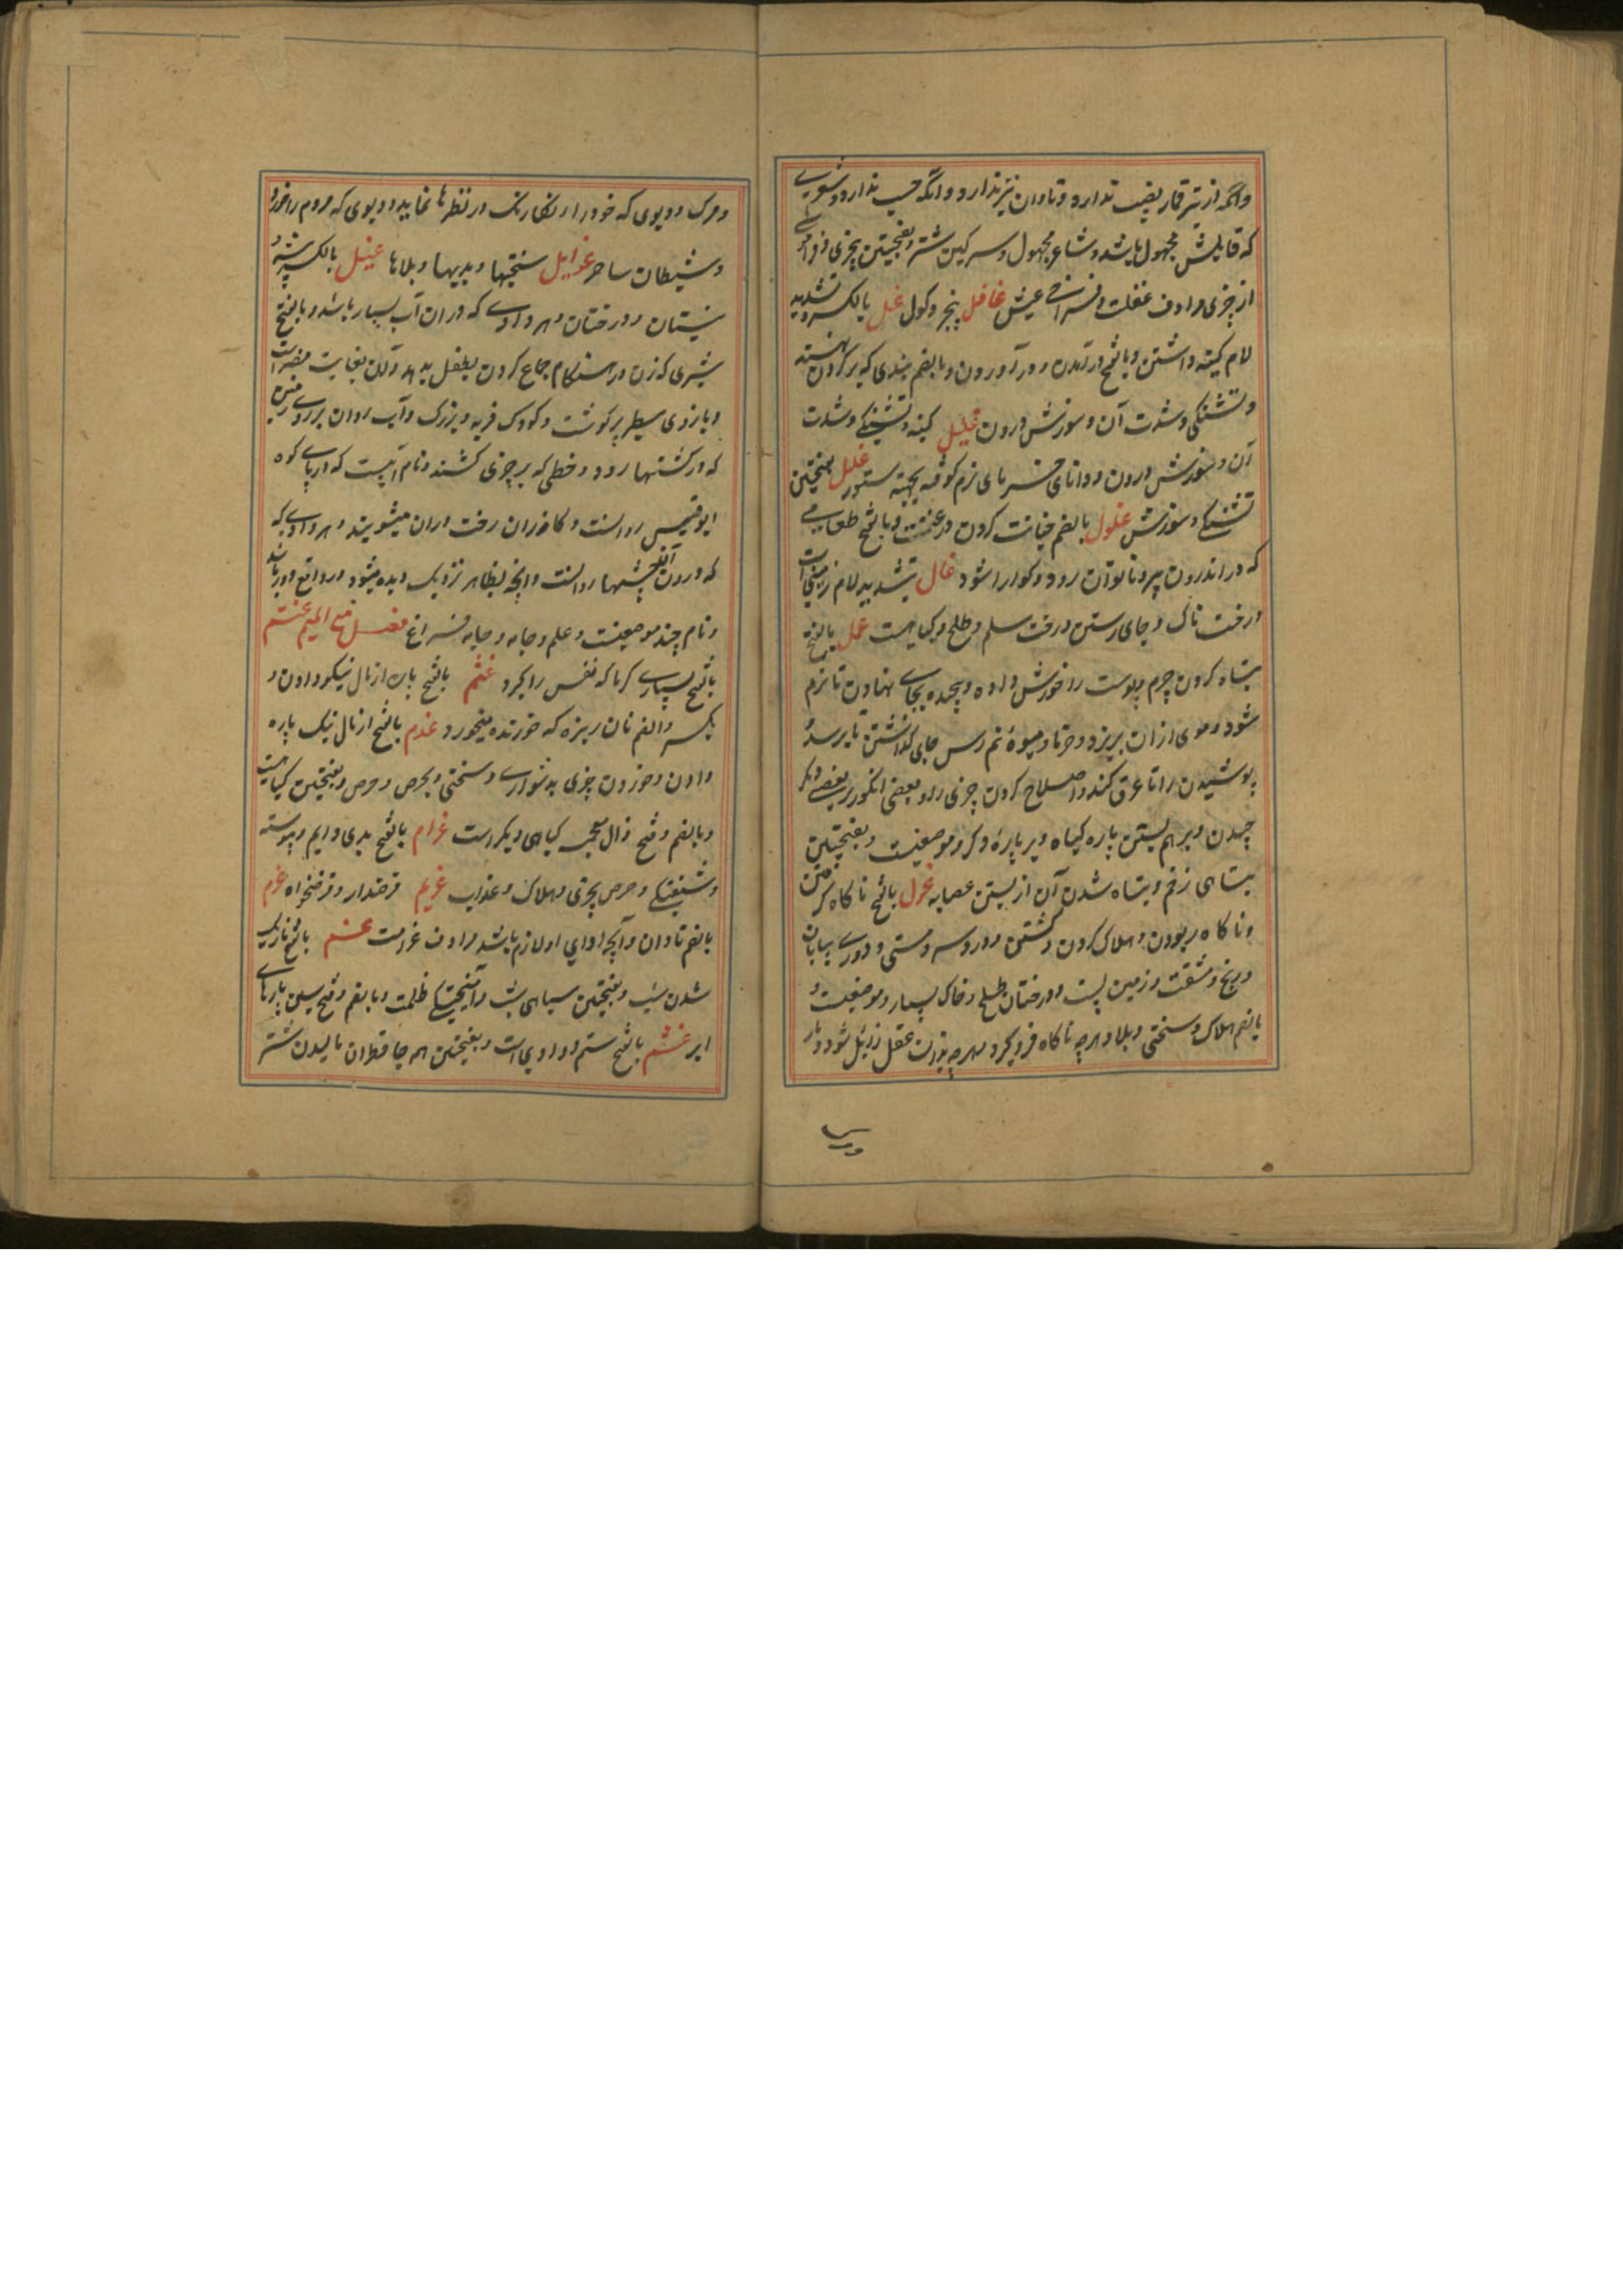 وآنکه از تیر قمار نصیب ندارد و تاوان نیز ندارد و آنکه حسب ندارد و شعری
که قایلش مجهول باشد و شاعر مجهول و سرکین شتر و بفتحتین چیزی فراموش
از چیزی مرادف غفلت و فراخی عیش غافل بیخبر و کول غل بالکسر و تشدید
لام کینه داشتن و بالفتح در آمدن و در آوردن و بالضم بندی که بر گردن نهند
و تشنگی و شدت آن و سوزش درون غلیل کینه و تشنگی و شدت
آن و سوزش درون و دانهای خرمای نرم کوفته بجهته ستور غلل بفتحتین
تشنگی و سوزش غلول بالضم خیانت کردن در غنیمت و بالفتح طعامی
که در اندرون پیر و ناتوان رود و کوارا شود غال بتشدید لام زمینیست
درخت ناک و جای رستن درخت سلم و طلح و کیاهیست غمل بالفتح
تباه کردن چرم و پوست را خورش داده و پیچیده بجای نهادن تا نرم
شود و موی از آن بریزد و خرما و میوهٔ نیم رس جای گذاشتن تا برسد و
پوشیدن را تا عرق کند و اصلاح کردن چیزی را و بعضی انکور بر بعضی دیگر
چیدن و بر هم بستن پاره کیاه و بر پارهٔ دیگر و موضعیست و بفتحتین
تباهی زخم و تباه شدن آن از بستن عصابه غول بالفتح ناکاه گرفتن
و ناکاه ربودن و هلاک کردن و کشتن و درد سر و مستی و دوری بیابان
و رنج و مشقت و زمین پست و درختان طلح و خاک بسیار و موضعیست و
بالضم هلاک و سختی و بلا و هرچه ناکاه فرو گیرد و هرچه بدان عقل زایل شود و مار
و مرگ و دیوی که خود را رنگارنگ در نظرها نماید و دیوی که مردم را خورد
و شیطان ساحر غوایل سختیها و بدیها و بلاها غیل بالکسر بیشه و
نیستان و درختان و هر وادی که در آن آب بسیار باشد و بالفتح
شیری که زن در هنگام جماع کردن بطفل بدهد و آن بغایت مضر است
و بازوی سطبر پر گوشت و کودک فربه و بزرک و آب روان بر روی زمین
که در کشتها رود و خطی که بر چیزی کشند و نام آبیست که در پای کوه
ابو قبیس روانست و کاذران رخت در آن میشویند و هر وادی که
که درون آن چشمها روانست و آنچه بظاهر نزدیک دیده میشود و در واقع دور باشد
و نام چند موضعیست و علم و جامه و جامه فراخ فصل مع المیم غتم
بالفتح بسیاری گرما که نفس را گیرد غثم بالفتح پاره از مال نیکو دادن و
بکسر و الضم نان ریزه که خورنده میخورد غذم بالفتح از مال نیک پاره
دادن و خوردن چیزی بدشواری و سختی و بحرص و حرص و بفتحتین کیاهیست
و بالضم و فتح ذال معجمه کیاهی دیکر است غرام بالفتح بدی دایم و پیوسته
و شیفتگی و حرص بچیزی و هلاک و عذاب غریم قرضدار و قرضخواه غرم
بالضم تاوان و آنچه ادای او لازم باشد مرادف غرامت غسم بالفتح تاریک
شدن شب و بفتحتین سیاهی شب و آمیختگی ظلمت و بالضم و فتح سین پارهای
ابر غشم بالفتح ستم و وادی است و بفتحتین همه جا قطران مالیدن شتر